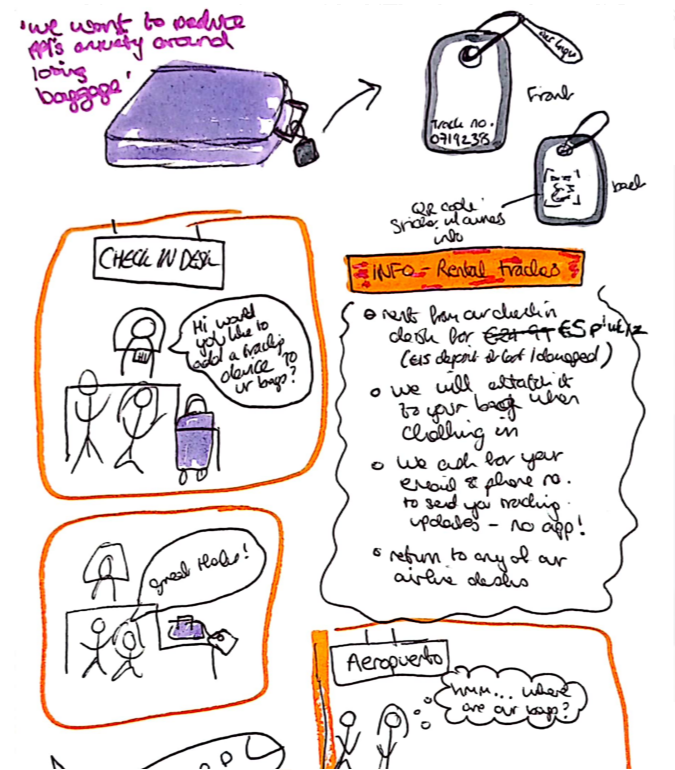 'we want to reduce
ppl's anxiety around
losing
baggage'
Front
Track no.
0719238
back
QR code
Sticker w owners
info
CHECK IN DESK
Hi would
you like to
add a tracking
device to
ur bags?
Hi
INFO - Rental trackers
rent from our check in
desk for £5 p/wk
(£15 deposit if lost / damaged)
we will attatch it
to your bag when
checking in
we ask for your
email & phone no.
to send you tracking
updates - no app!
return to any of our
airline desks
great thanks!
Aeropuerto
HMM... where
are our bags?